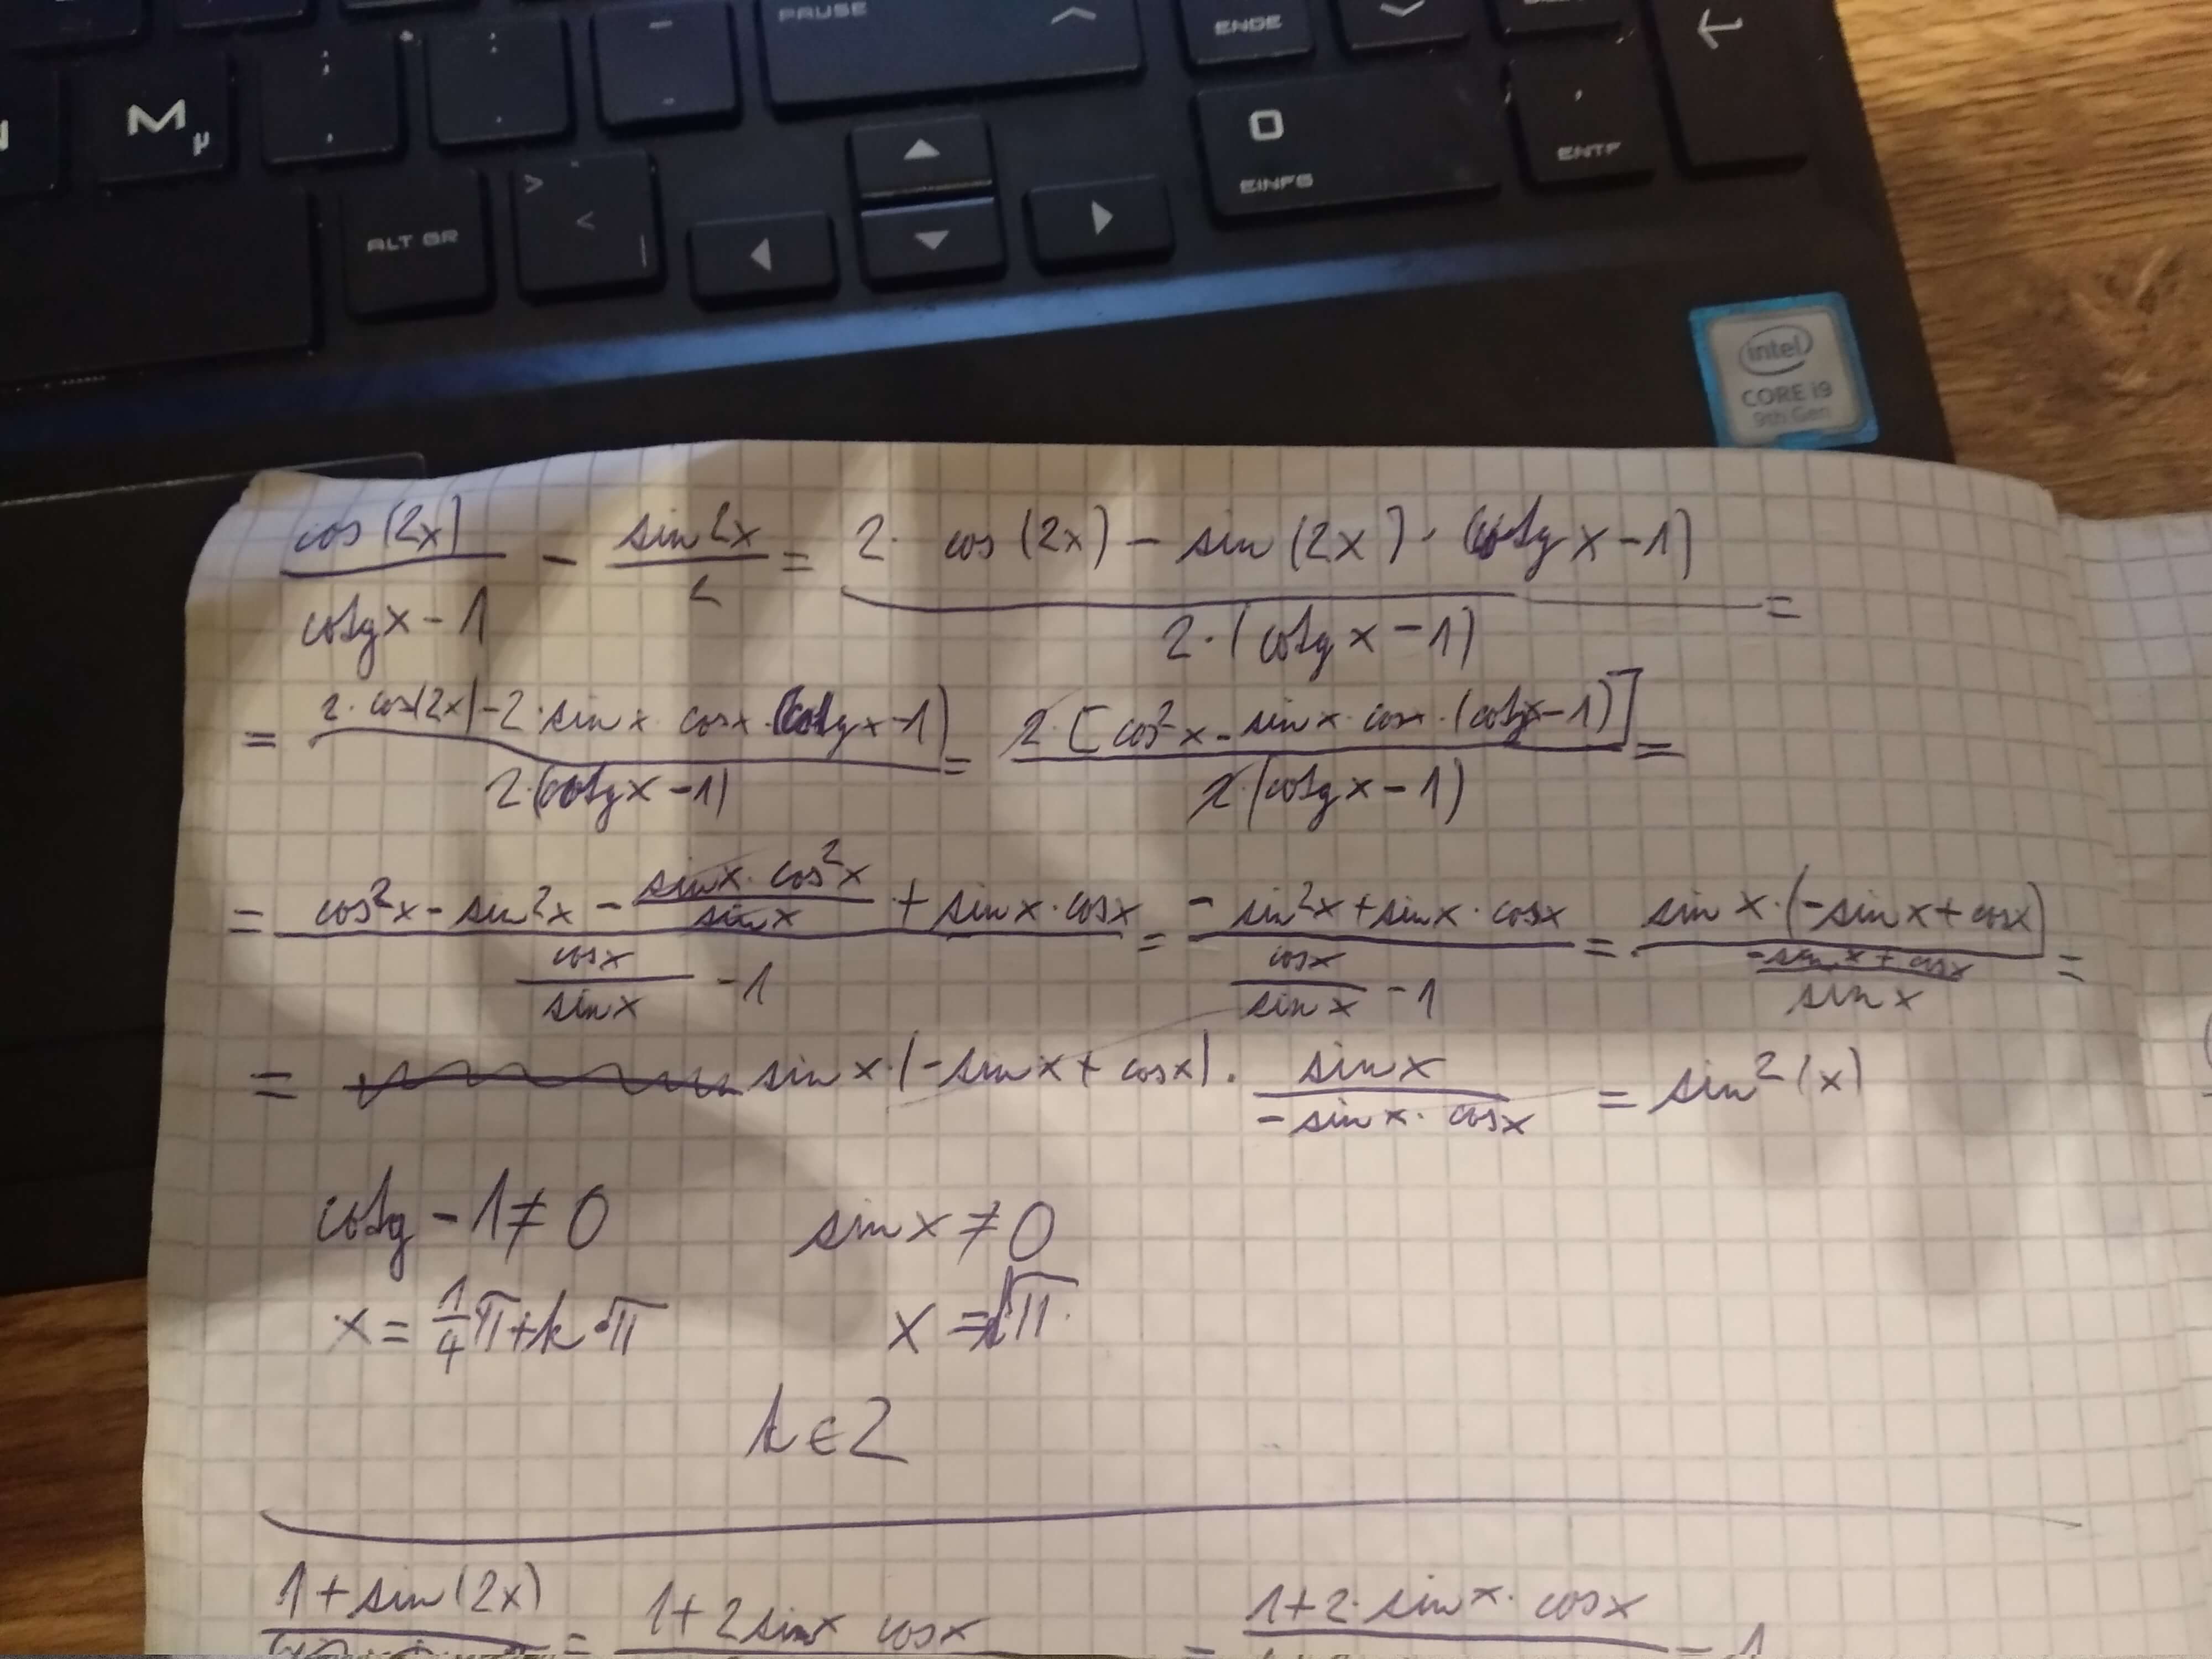 PAUSE
ENDE
M µ
; ,
: .
- _
0
EINFG
, ENTF
ALT GR
> < |
intel
CORE i9
9th Gen
cos(2x)/(cotgx-1) - sin2x/2 = (2· cos(2x) - sin(2x) · (cotgx-1))/(2·(cotgx-1)) =
= (2·cos(2x)-2·sinx·cosx·(cotgx-1))/(2·(cotgx-1)) = (2·[cos²x-sinx·cosx·(cotgx-1)])/(2·(cotgx-1)) =
= (cos²x-sin²x-(sinx·cos²x)/(sinx)+sinx·cosx)/((cosx)/(sinx)-1) = (-sin²x+sinx·cosx)/((cosx)/(sinx)-1) = (sinx·(-sinx+cosx))/((-sinx+cosx)/(sinx)) =
= sinx·(-sinx+cosx)·(sinx)/(-sinx·cosx) = sin²(x)
cotg-1≠0 sinx≠0
x=1/4π+k·π x=kπ
k∈Z
(1+sin(2x)) = 1+2sinx cosx = 1+2·sinx·cosx = 1